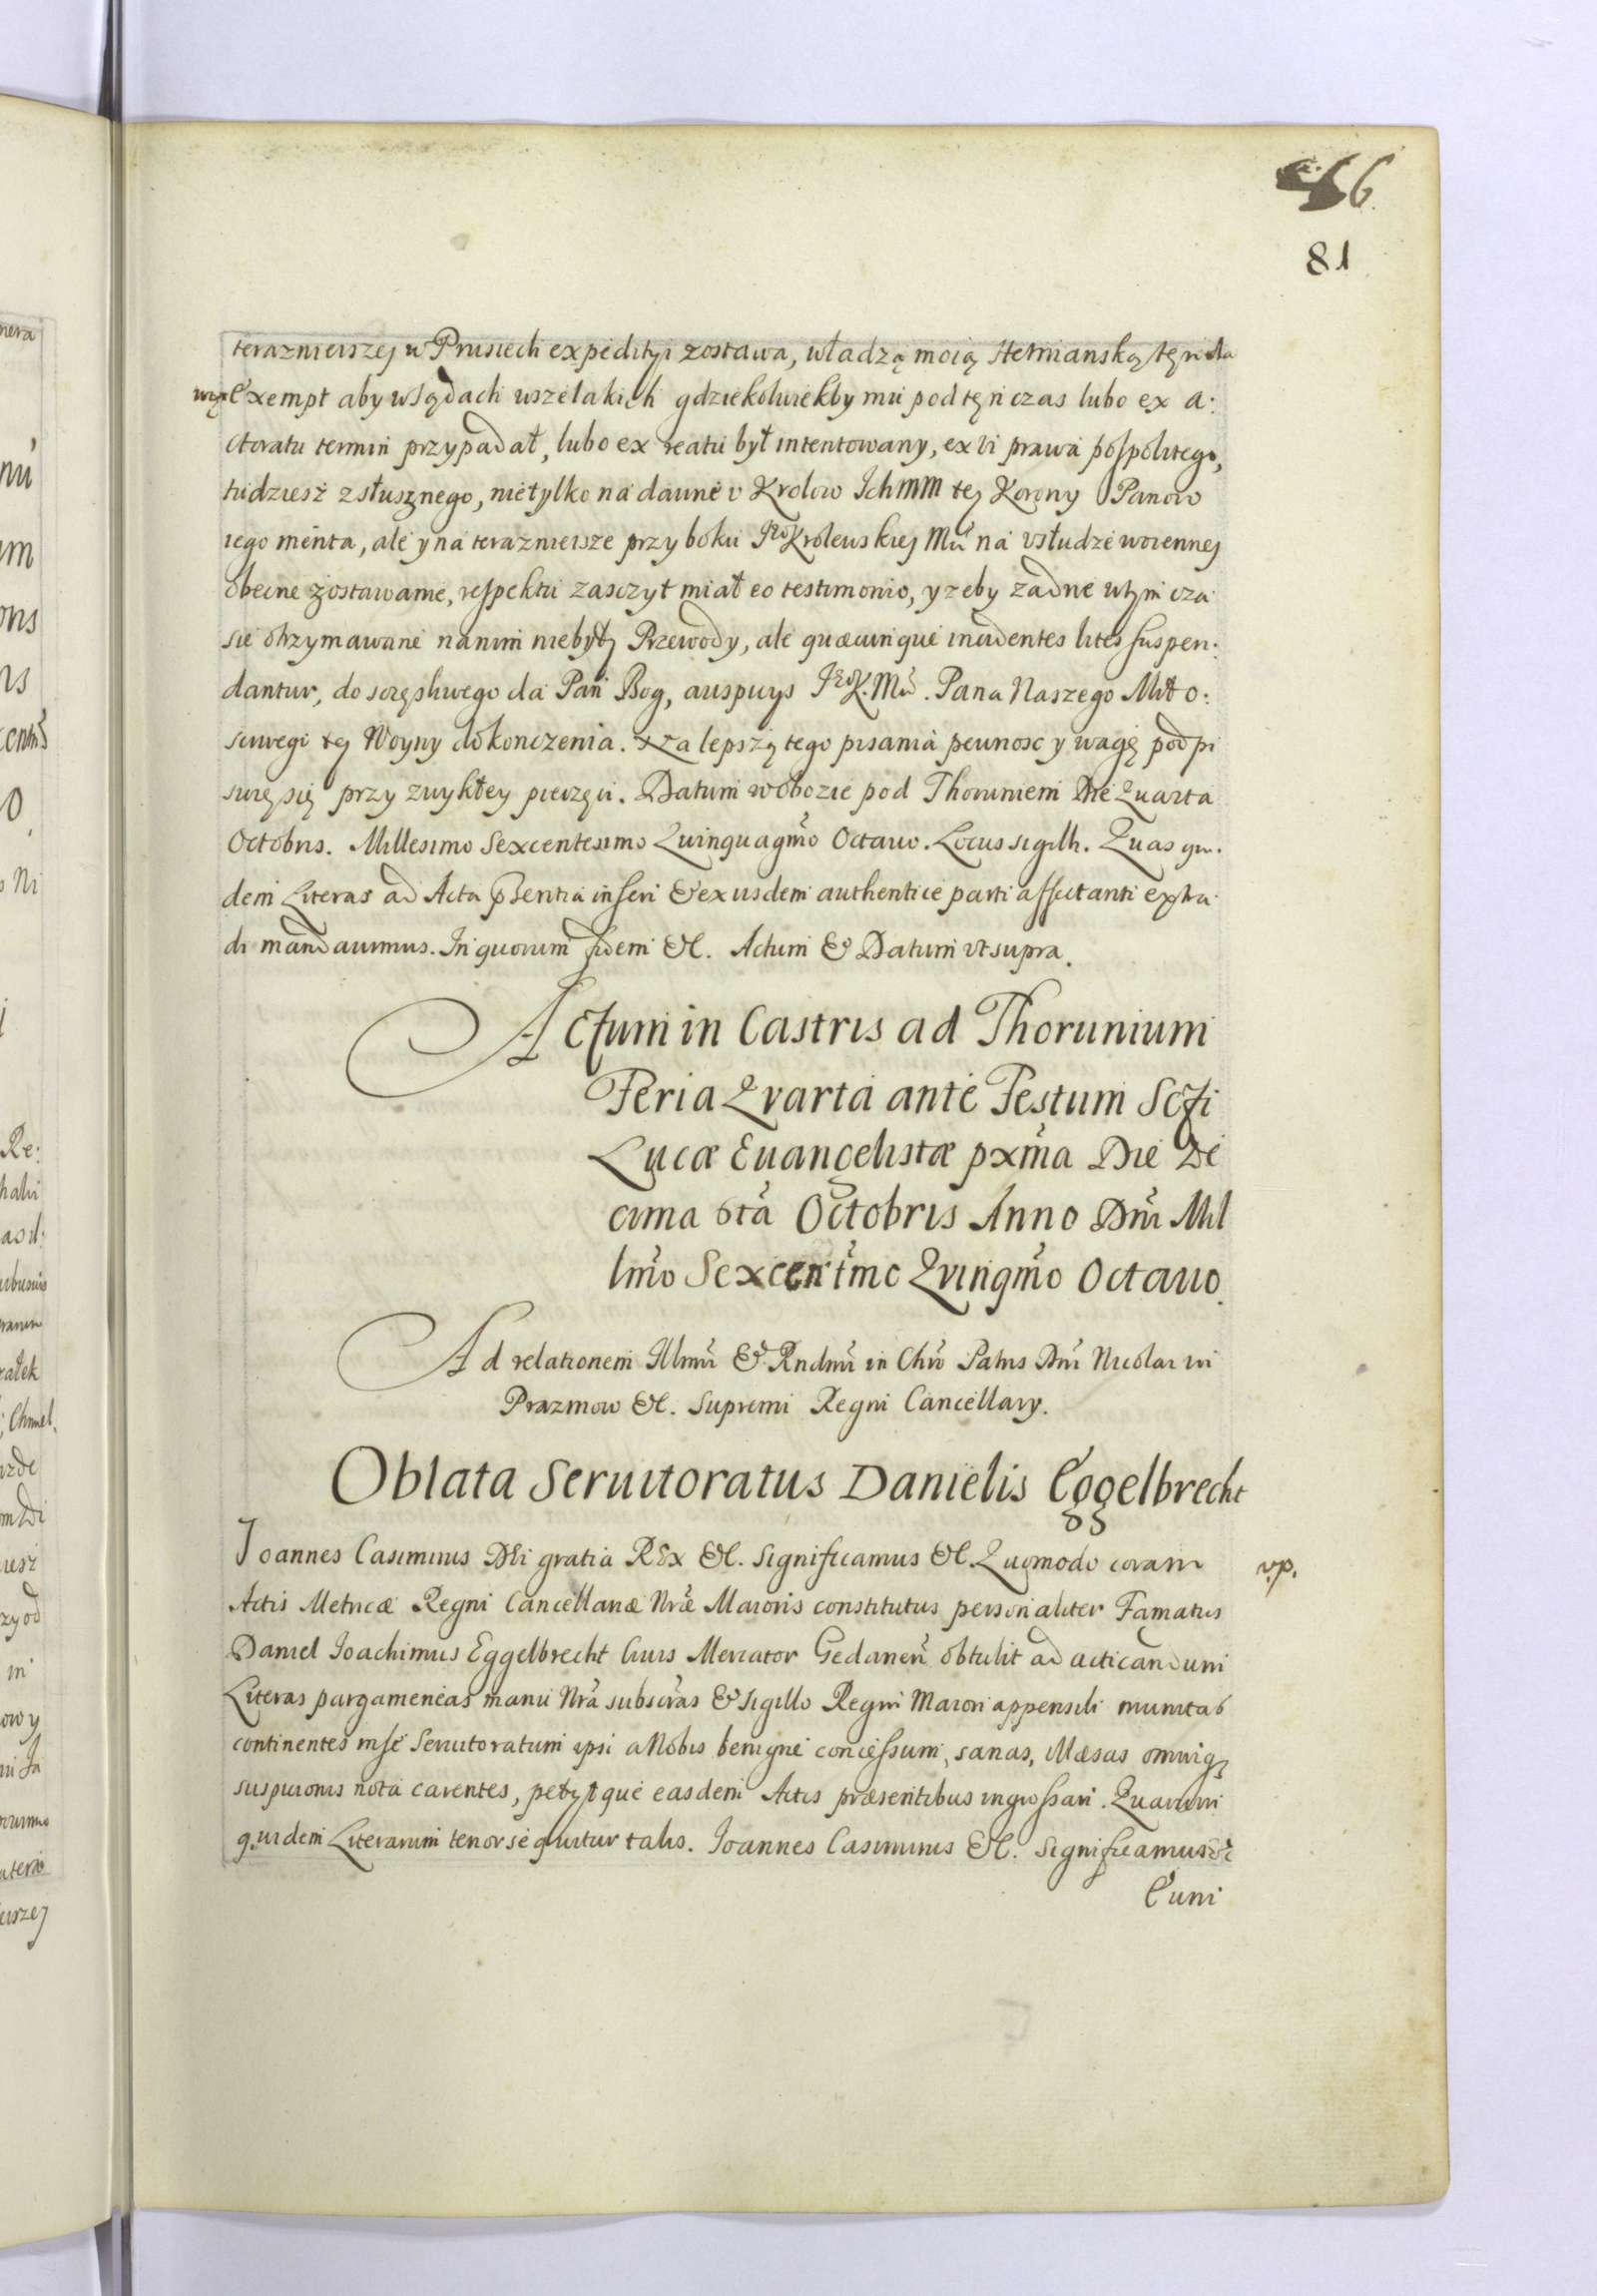 66
81
teraznieiszej w Prusiech expedityi zostawa, władzą moią Hetmanską tęn da
wąsz Exempt aby w Sądach wszelakich gdziekolwiekby mu pod tęn czas lubo ex a:
ctoratu termin przypadał, lubo ex reatu był intentowany, ex vi prawa pospolitego,
tudziesz z słusznego, nie tylko na daune v Krolow Ichmm tej Korony Panow
iego merita, ale y na teraznieisze przy boku Jeo Krolewskiej Mci na vsłudze woiennej
obecne zostawanie, respektu zasczyt miał eo testimonio, y zeby zadne w tym cza
sie otrzymawane na nim nie były Przewody, ale quæcunque incidentes lites suspen:
dantur, do sczęsliwego da Pan Bog, auspicys JeoK.Mci. Pana Naszego Miło:
sciwego tej Woyny dokonczenia. Za lepszą tego pisania pewnosc y wagę podpi
suię się przy zwykłey pieczęci. Datum w obozie pod Thoruniem Die Quarta
Octobris. Millesimo Sexcentesimo Quinquagmo Octauo. Locus sigilli. Quas qui.
dem Literas ad Acta pntia inseri & ex ijsdem authentice parti affectanti extra
di mandauimus. In quorum fidem &c. Actum & Datum vt supra.
Actum in Castris ad Thorunium
Feria Qvarta ante Festum Scti
Lucæ Euangelistæ pxma Die De
cima 6ta Octobris Anno Dni Mil
lmo Sexcentmo Qvinqmo Octauo.
Ad relationem Illmi & Rndmi in Chro Patris Dni Nicolai in
Prazmow &c. Supremi Regni Cancellary.
Oblata Seruitoratus Danielis Eggelbrecht
Joannes Casimirus DEi gratia REx &c. Significamus &c. Quomodo coram
v.p.
Actis Metricæ Regni Cancellariæ Nræ Maioris constitutus personaliter Famatus
Daniel Ioachimus Eggelbrecht Ciuis Mercator Gedanen obtulit ad acticandum
Literas pargameneas manu Nra subscras & sigillo Regni Maiori appensili munitas
continentes in se Seruitoratum ipsi a Nobis benigne concessum, sanas, illæsas omniq
suspicionis nota carentes, petytque easdem Actis præsentibus ingrossari. Quarum
quidem Literarum tenor sequitur talis. Joannes Casimirus &c. Significamus &c
Cum